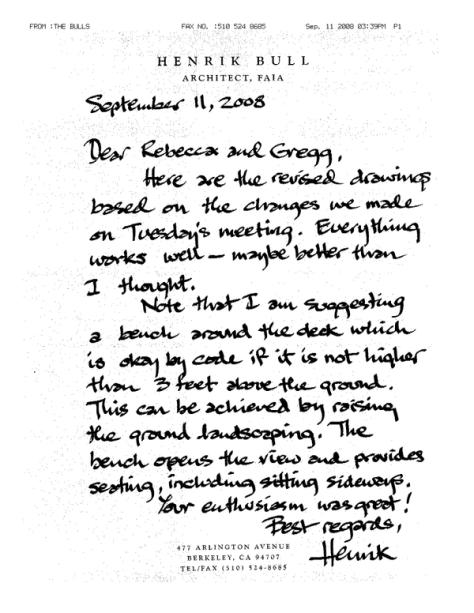 FROM :THE BULLS FAX NO. :510 524 8685 Sep. 11 2008 03:39PM P1
HENRIK BULL
ARCHITECT, FAIA
September 11, 2008
Dear Rebecca and Gregg,
Here are the revised drawings
based on the changes we made
on Tuesday's meeting. Everything
works well – maybe better than
I thought.
Note that I am suggesting
a bench around the deck which
is okay by code if it is not higher
than 3 feet above the ground.
This can be achieved by raising
the ground landscaping. The
bench opens the view and provides
seating, including sitting sideways.
Your enthusiasm was great!
Best regards,
Henrik
477 ARLINGTON AVENUE
BERKELEY, CA 94707
TEL/FAX (510) 524-8685